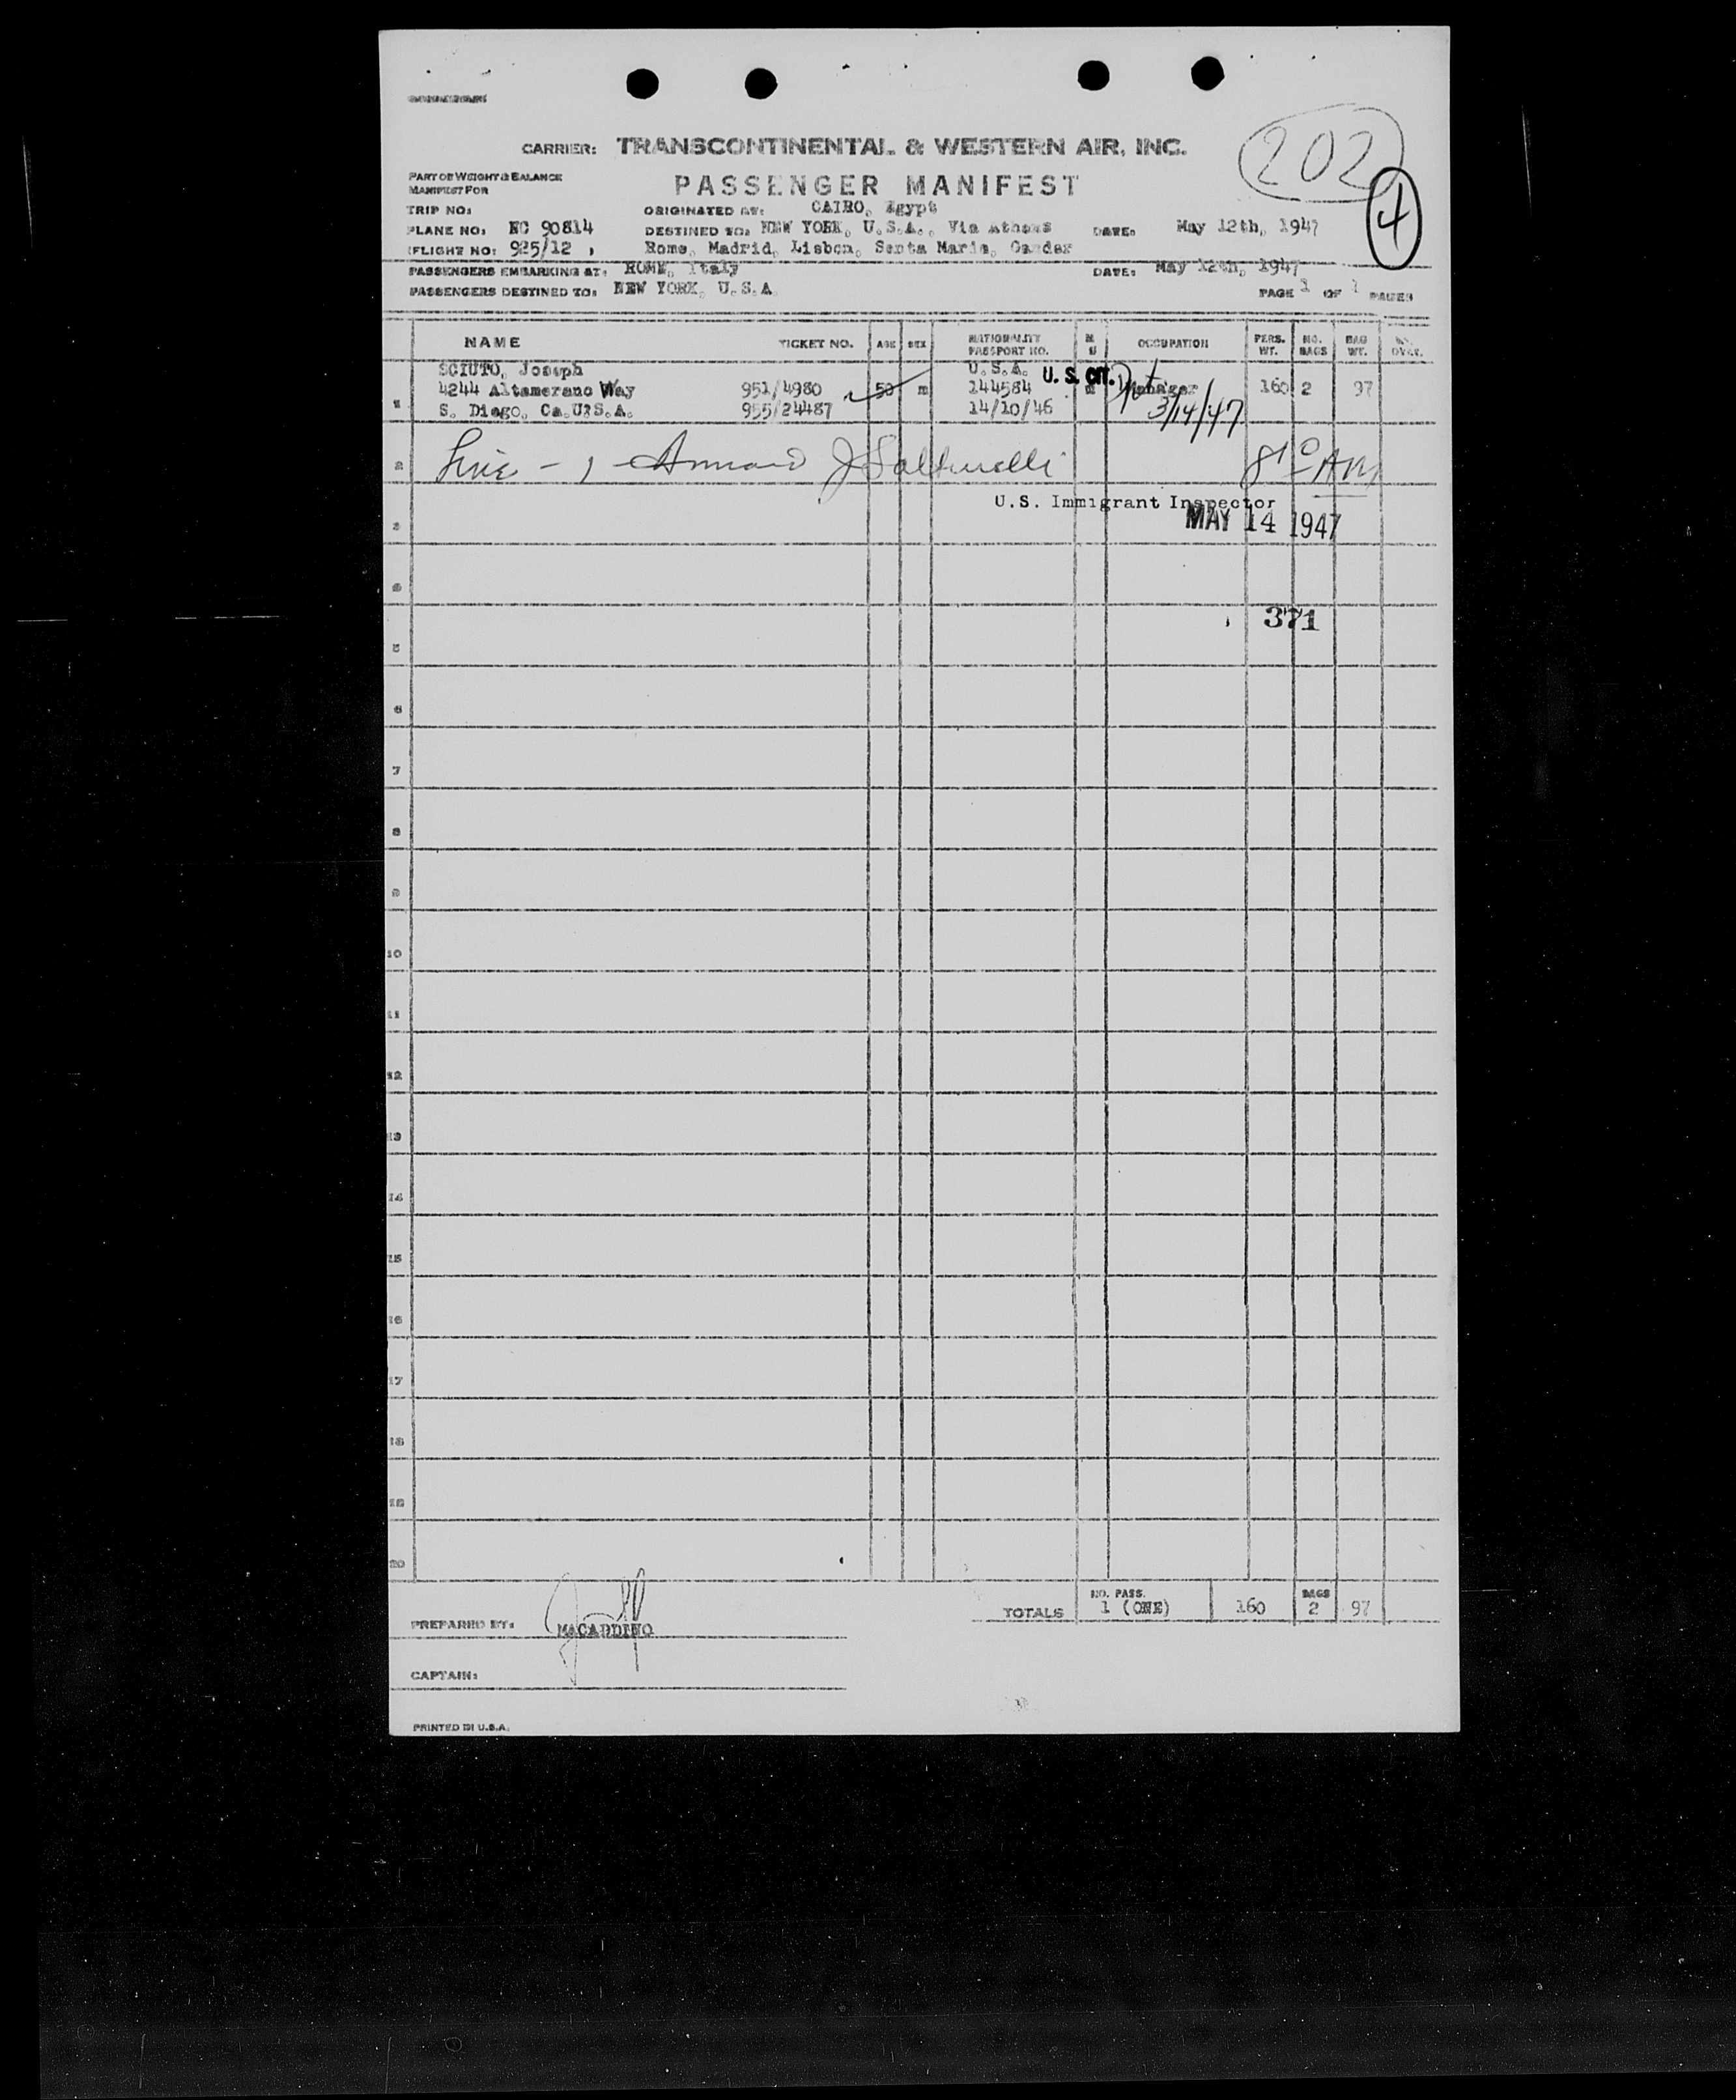 CARRIER: TRANSCONTINENTAL & WESTERN AIR, INC.
202
PART OF WEIGHT & BALANCE
MANIFEST FOR
PASSENGER MANIFEST
4
TRIP NO: ORIGINATED AT: CAIRO, Egypt
PLANE NO: NC 90814 DESTINED TO: NEW YORK, U.S.A., Via Athens DATE: May 12th, 1947
FLIGHT NO: 925/12 Rome, Madrid, Lisbon, Santa Maria, Gander
PASSENGERS EMBARKING AT: ROME, Italy DATE: May 12th, 1947
PASSENGERS DESTINED TO: NEW YORK, U.S.A. PAGE 1 OF 1 PAGES
NAME TICKET NO. AGE SEX NATIONALITY PASSPORT NO. M U OCCUPATION PERS. WT. NO. BAGS BAG WT.
SCIUTO, Joseph U.S.A. U.S. CIT.
4244 Altamerano Way 951/4980 50 m 144584 m Manager 160 2 97
1 S. Diego, Ca.U.S.A. 955/24487 14/10/46 3/14/47
2 Line - 1 - J 8 10 AM
U.S. Immigrant Inspector
3 MAY 14 1947
4
371
5
6
7
8
9
10
11
12
13
14
15
16
17
18
19
20
NO. PASS. BAGS
TOTALS 1 (ONE) 160 2 97
PREPARED BY: MACARDINO
CAPTAIN:
PRINTED IN U.S.A.